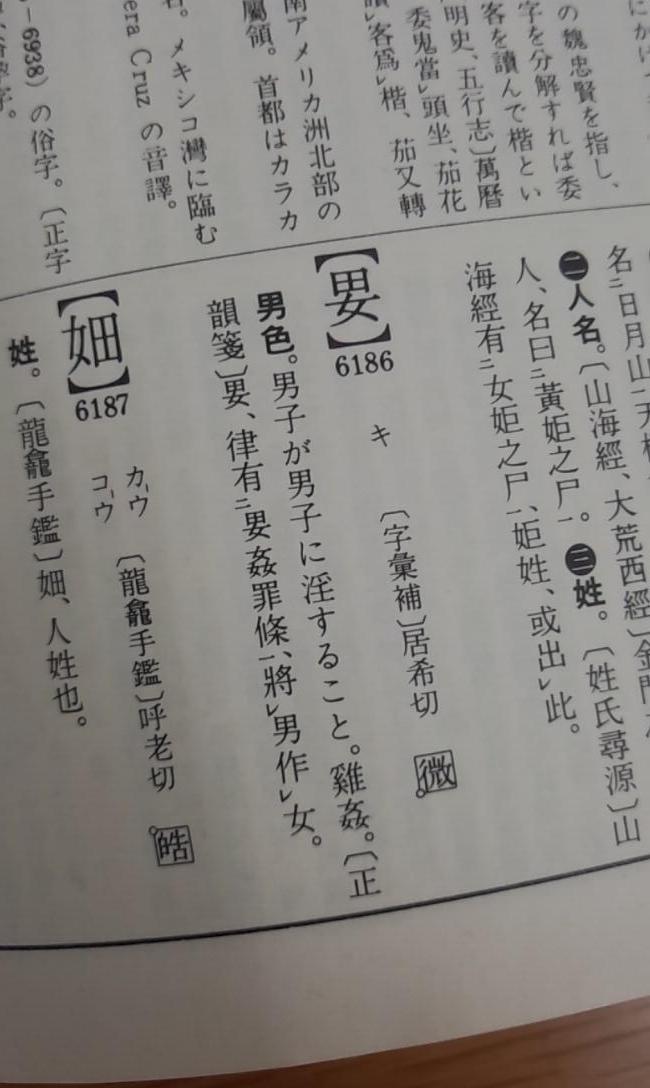 の魏忠賢を指し、
字を分解すれば委
客を讀んで楷とい
明史、五行志〕萬曆
委鬼當レ頭坐、茄花
讀レ客爲レ楷、茄又轉
南アメリカ洲北部の
屬領。首都はカラカ
名。メキシコ灣に臨む
era Cruz の音譯。
-6938) の俗字。〔正字
俗字。
名二日月山一天
㊁人名。〔山海經、大荒西經〕金門
人、名曰二黃姖之尸一。㊂姓。〔姓氏尋源〕山
海經有二女姖之尸一、姖姓、或出レ此。
【㚻】6186 キ 〔字彙補〕居希切 微
男色。男子が男子に淫すること。雞姦。〔正
韻箋〕㚻、律有二㚻姦罪條一、將レ男作レ女。
6187 カウ コウ 〔龍龕手鑑〕呼老切 皓
姓。〔龍龕手鑑〕、人姓也。